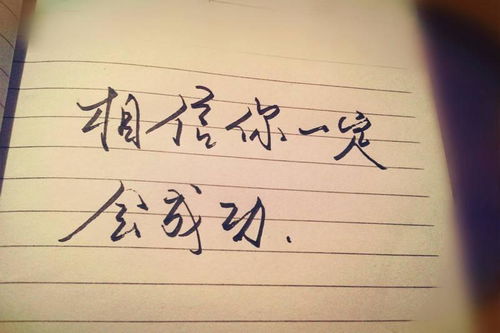 相信你一定
会成功.